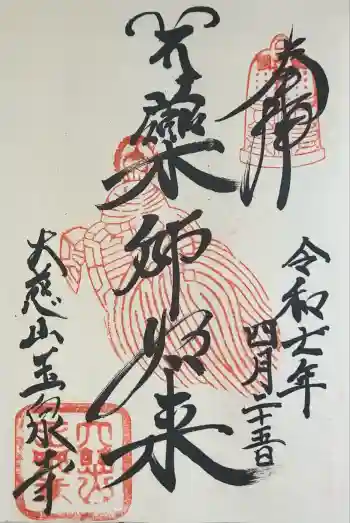 奉拝
令和七年
四月二十五日
薬師如来
大慈山
泉寺